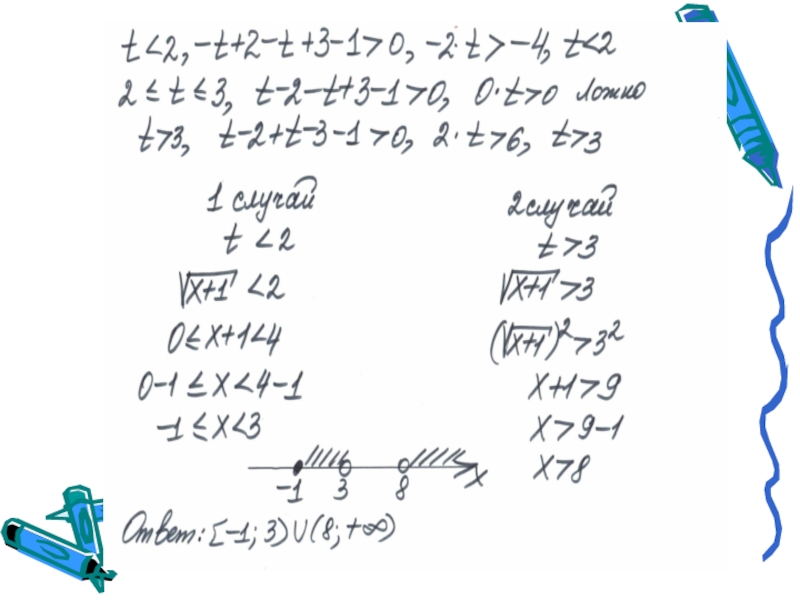 t<2, -t+2-t+3-1>0, -2·t>-4, t<2
2≤t≤3, t-2-t+3-1>0, 0·t>0 ложно
t>3, t-2+t-3-1>0, 2·t>6, t>3
1 случай
t<2
√x+1<2
0≤x+1<4
0-1≤x<4-1
-1≤x<3
2 случай
t>3
√x+1>3
(√x+1)²>3²
x+1>9
x>9-1
x>8
-1 3 8 x
Ответ: [-1; 3)∪(8; +∞)